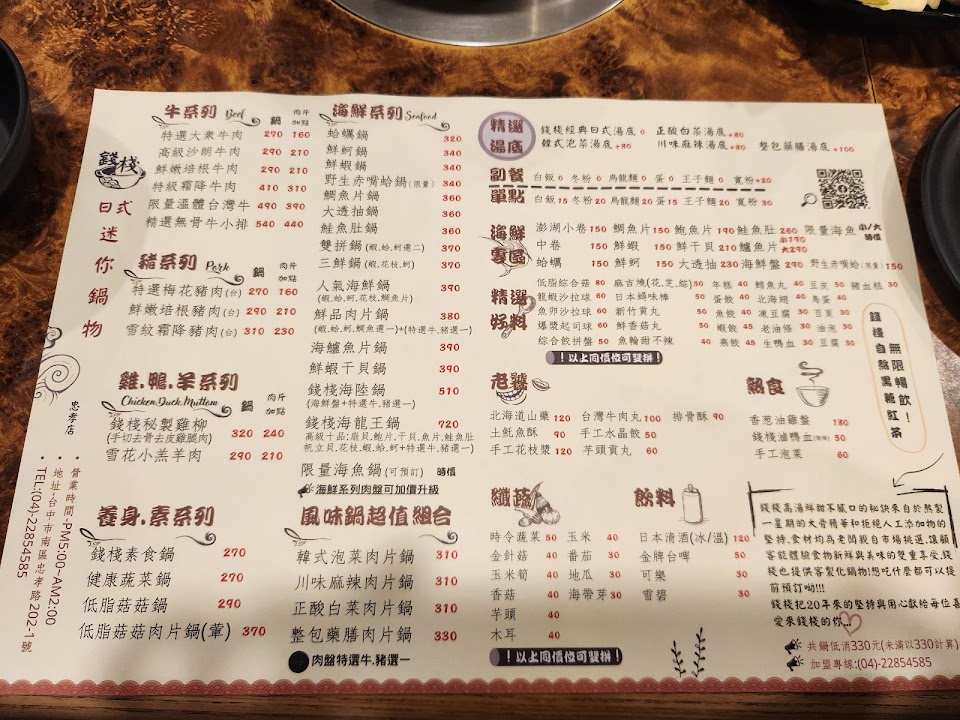 錢棧
日式迷你鍋物
忠孝店
• 營業時間:PM5:00~AM2:00
• 地址:台中市南區忠孝路202-1號
• TEL:(04)-22854585
牛系列 Beef 鍋 肉片加點
特選大眾牛肉 270 160
高級沙朗牛肉 290 210
鮮嫩培根牛肉 290 210
特級霜降牛肉 410 310
限量溫體台灣牛 490 390
精選無骨牛小排 540 440
豬系列 Pork 鍋 肉片加點
特選梅花豬肉(台) 270 160
鮮嫩培根豬肉(台) 290 210
雪紋霜降豬肉(台) 310 230
雞.鴨.羊系列
Chicken.Duck.Muttom 鍋 肉片加點
錢棧秘製雞柳 320 240
(手切去骨去皮雞腿肉)
雪花小羔羊肉 290 210
養身.素系列
錢棧素食鍋 270
健康蔬菜鍋 270
低脂菇菇鍋 290
低脂菇菇肉片鍋(葷) 370
海鮮系列 Seafood
蛤蠣鍋 320
鮮蚵鍋 340
鮮蝦鍋 340
野生赤嘴蛤鍋(限量) 340
鯛魚片鍋 360
大透抽鍋 360
鮭魚肚鍋 360
雙拼鍋(蝦,蛤,蚵選二) 370
三鮮鍋(蝦,花枝,蚵) 370
人氣海鮮鍋 390
(蝦,蛤,蚵,花枝,鯛魚片)
鮮品肉片鍋 380
(蝦,蛤,蚵,鯛魚選一)+(特選牛,豬選一)
海鱸魚片鍋 390
鮮蝦干貝鍋 390
錢棧海陸鍋 510
(海鮮盤+特選牛,豬選一)
錢棧海龍王鍋 720
高級十品;扇貝,鮑片,干貝,魚片,鮭魚肚
帆立貝,花枝,蝦,蛤,蚵+特選牛,豬選一)
限量海魚鍋(可預訂) 時價
海鮮系列肉盤可加價升級
風味鍋超值組合
韓式泡菜肉片鍋 310
川味麻辣肉片鍋 310
正酸白菜肉片鍋 310
整包藥膳肉片鍋 330
肉盤特選牛.豬選一
精選湯底
錢棧經典日式湯底 0 正酸白菜湯底+80
韓式泡菜湯底+80 川味麻辣湯底+80 整包藥膳湯底+100
副餐 白飯 0 冬粉 0 烏龍麵 0 蛋 0 王子麵 0 寬粉+20
單點 白飯 15 冬粉 20 烏龍麵 20 蛋 15 王子麵 20 寬粉 30
海鮮專區
澎湖小卷 150 鯛魚片 150 鮑魚片 190 鮭魚肚 260 限量海魚 小/大 時價
中卷 150 鮮蝦 150 鮮干貝 210 鱸魚片 小190 大290
蛤蠣 150 鮮蚵 150 大透抽 230 海鮮盤 290 野生赤嘴蛤(限量) 150
精選好料
低脂綜合菇 80 麻吉燒(花,芝,綜) 50 年糕 40 鱈魚丸 40 豆皮 50 豬血糕 30
龍蝦沙拉球 60 日本蟳味棒 50 蛋餃 40 北海翅 40 鳥蛋 40
魚卵沙拉球 60 新竹貢丸 50 魚餃 40 凍豆腐 30 百頁 30
爆漿起司球 60 鮮香菇丸 50 蝦餃 45 老油條 30 油泡 30
綜合餃拼盤 50 魚輪甜不辣 40 燕餃 45 生鴨血 30 豆腐 30
!以上同價位可雙拼!
老饕
北海道山藥 120 台灣牛肉丸 100 排骨酥 90
土魠魚酥 90 手工水晶餃 50
手工花枝漿 120 芋頭貢丸 60
熟食
香葱油雞盤 180
錢棧滷鴨血(辣辣) 50
手工泡菜 60
無限暢飲!
錢棧自熬黑糖紅茶
纖蔬
時令蔬菜 50 玉米 40
金針菇 40 番茄 30
玉米筍 40 地瓜 30
香菇 40 海帶芽 30
芋頭 40
木耳 40
!以上同價位可雙拼!
飲料
日本清酒(冰/溫) 120
金牌台啤 50
可樂 30
雪碧 30
錢棧高湯鮮甜不膩口的秘訣來自於熬製
一星期的大骨精華和拒絕人工添加物的
堅持,食材均為老闆親自市場挑選,讓顧
客能體驗食物新鮮與美味的雙重享受,錢
棧也提供客製化鍋物!想吃什麼都可以提
前預訂呦!!!
錢棧把20年來的堅持與用心獻給每位喜
愛來錢棧的你...
共鍋低消330元(未滿以330計算)
加盟專線:(04)-22854585